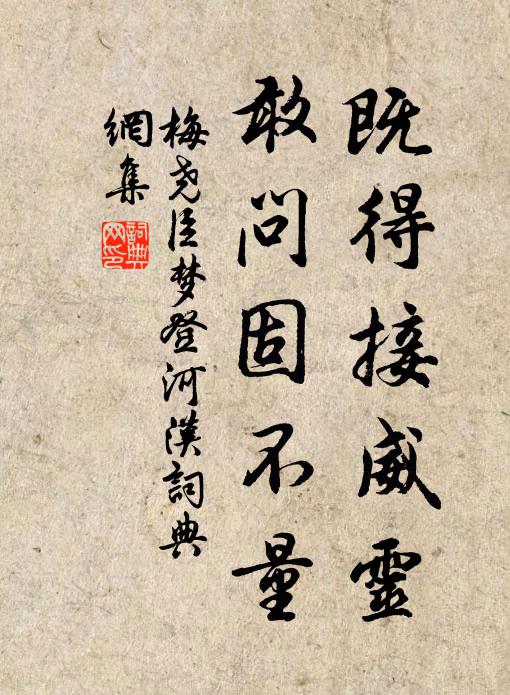 既得接威靈
敢问固不量
梅尧臣梦登河漢詞典
網集
詞典
网印